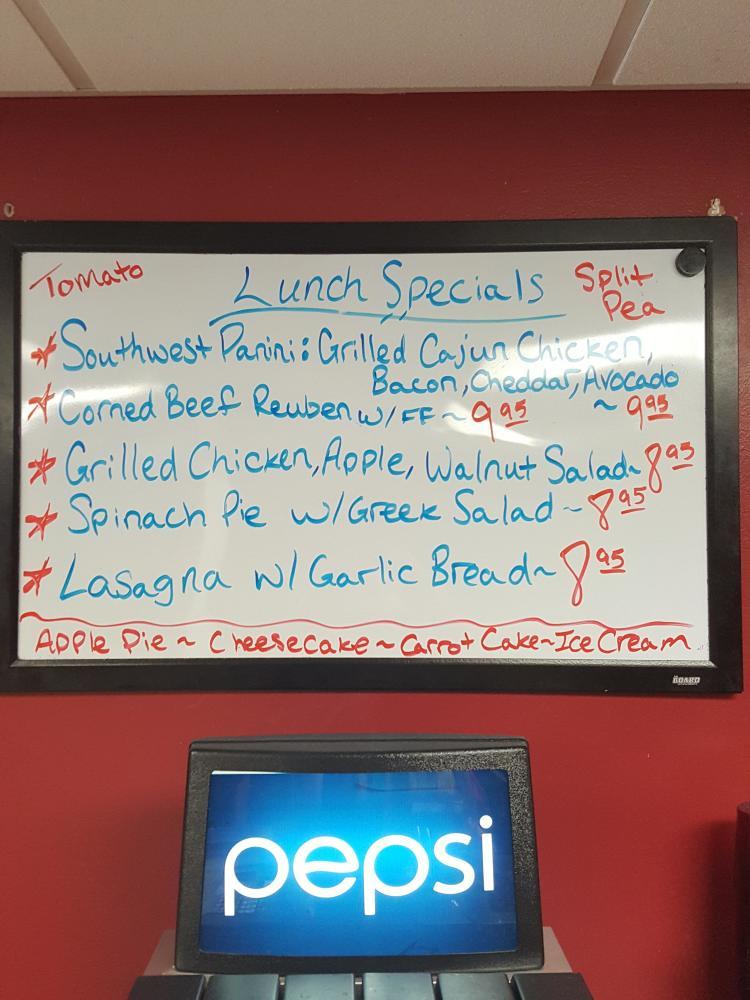 Tomato
Lunch Specials
Split
Pea
* Southwest Panini: Grilled Cajun Chicken,
Bacon, Cheddar, Avocado
~ 9.95
* Corned Beef Reuben w/FF ~ 9.95
* Grilled Chicken, Apple, Walnut Salad ~ 8.95
* Spinach Pie w/Greek Salad ~ 8.95
* Lasagna w/ Garlic Bread ~ 8.95
Apple Pie ~ Cheesecake ~ Carrot Cake ~ Ice Cream
BOARD
pepsi